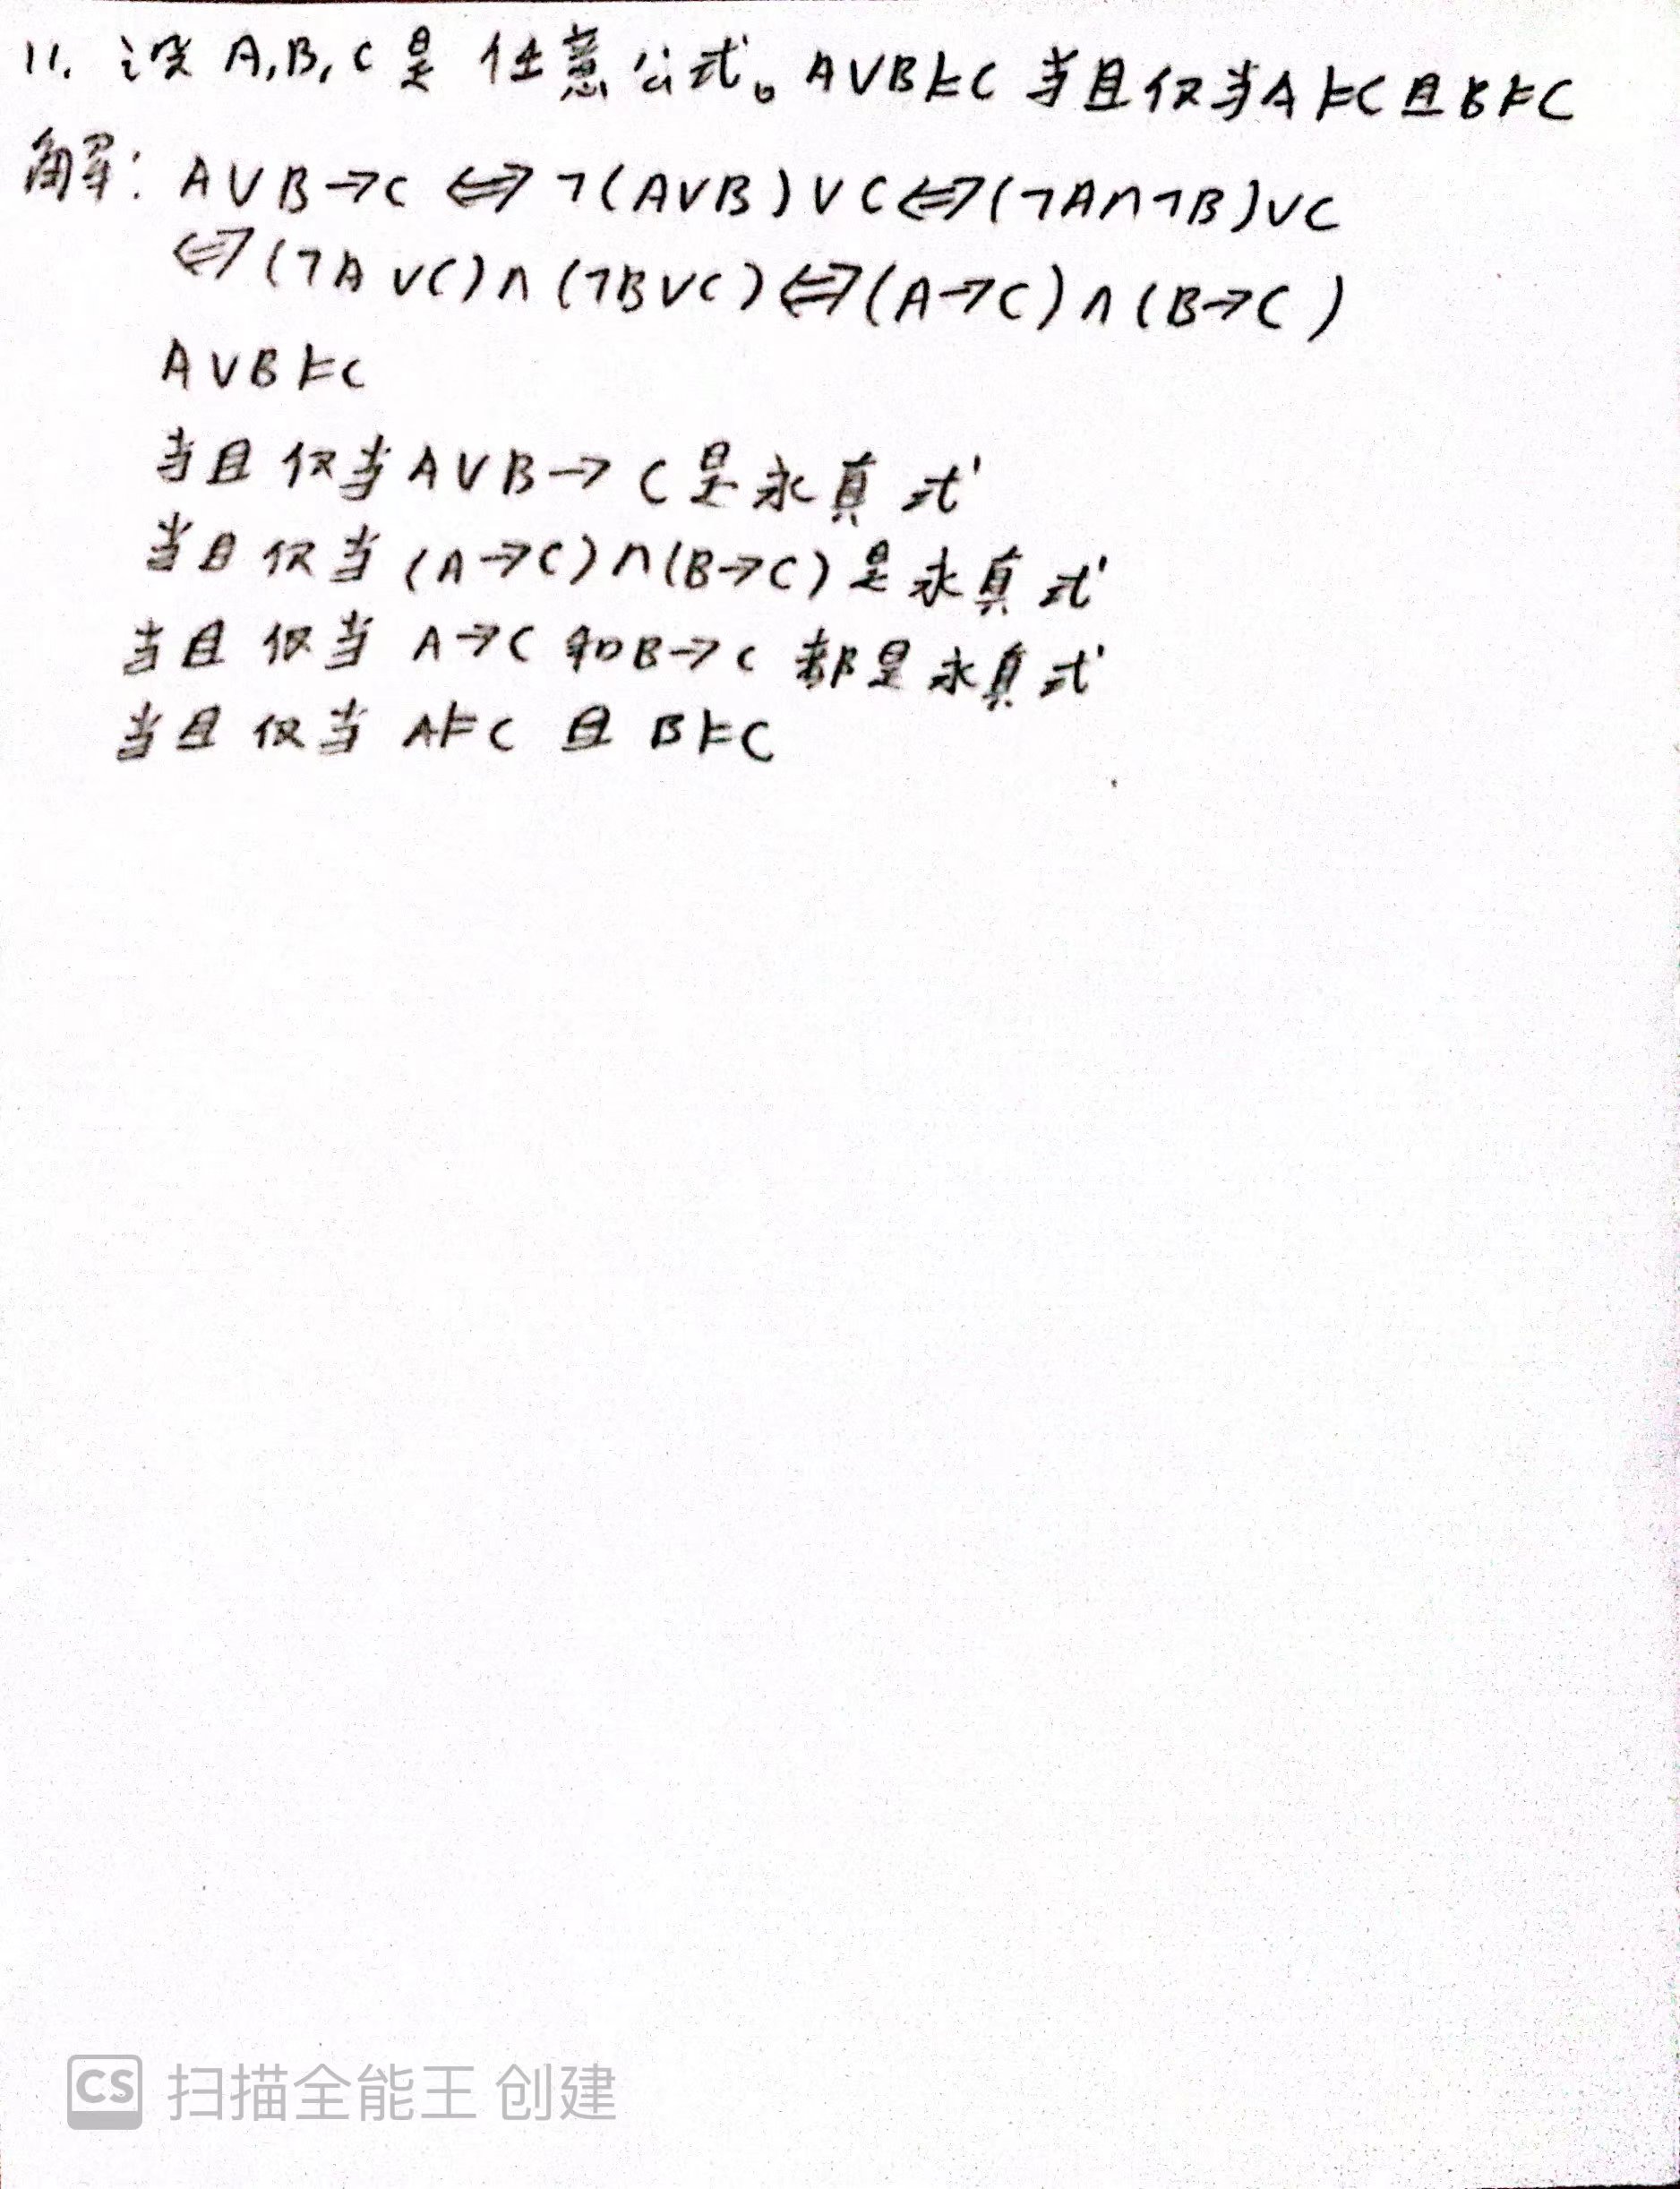 11. 设 A,B,C是 任意公式。A∨B⊨C 当且仅当A⊨C且B⊨C
解: A∨B→C ⇔ ¬(A∨B)∨C⇔(¬A∧¬B)∨C
⇔(¬A∨C)∧(¬B∨C)⇔(A→C)∧(B→C)
A∨B⊨C
当且仅当A∨B→C是永真式
当且仅当(A→C)∧(B→C)是永真式
当且仅当 A→C 和B→C 都是永真式
当且仅当 A⊨C 且 B⊨C
CS 扫描全能王 创建